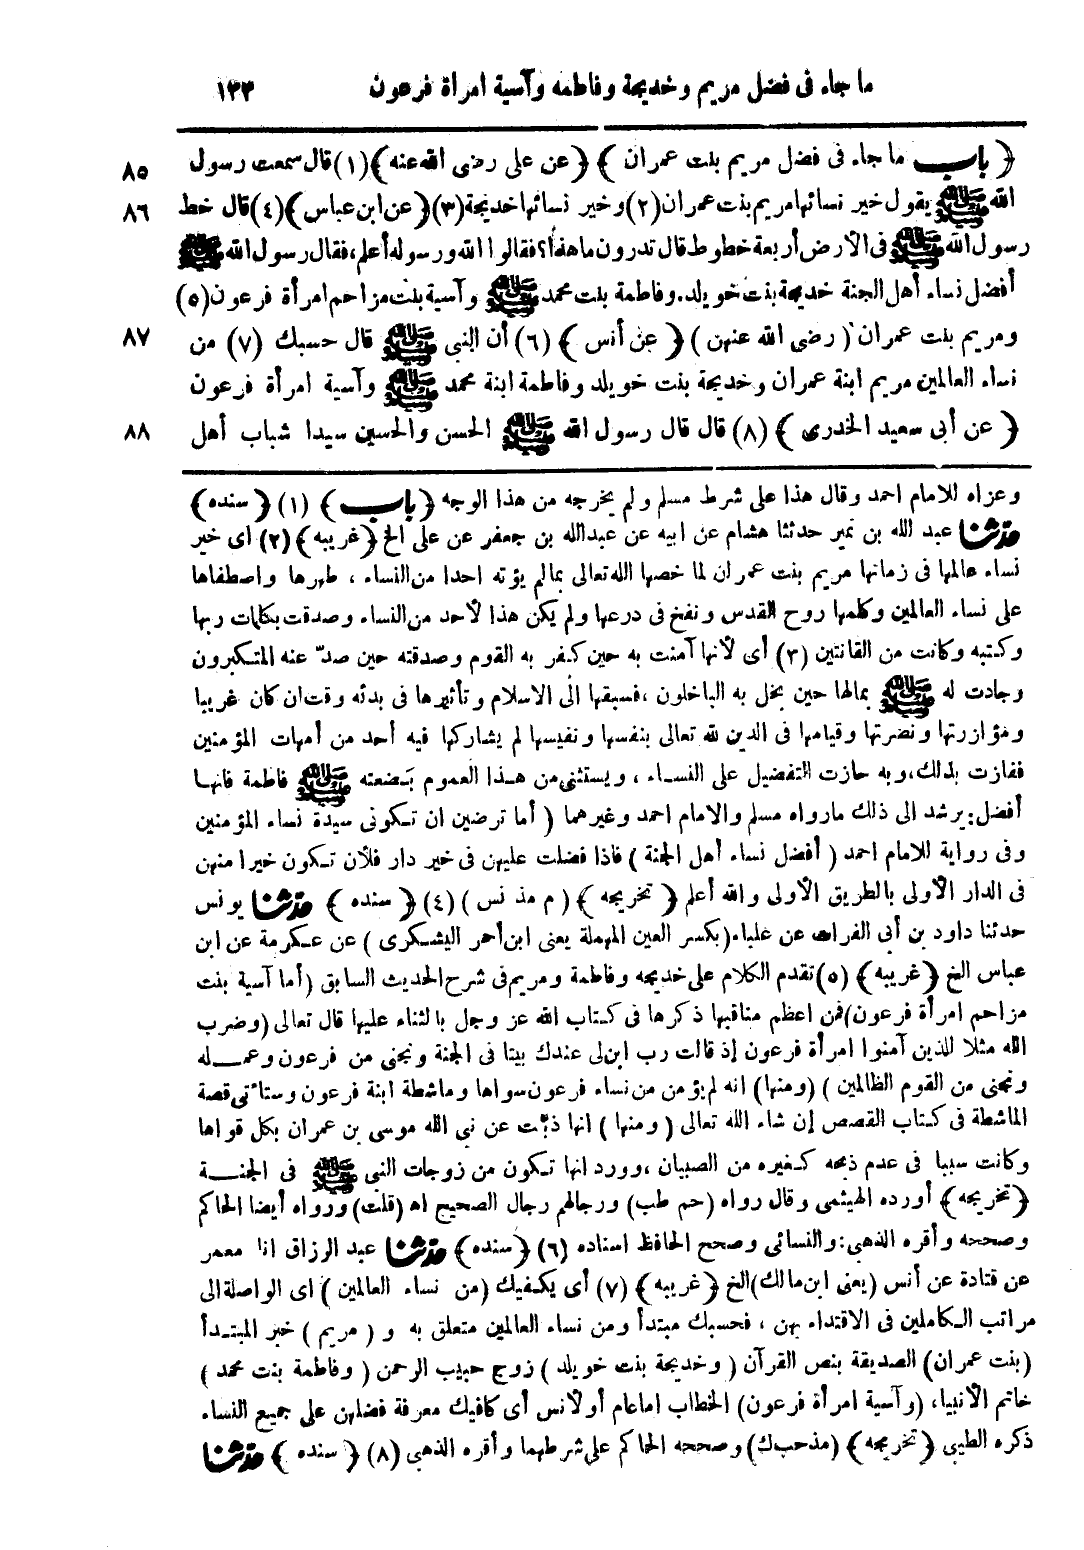 ما جاء فى فضل مريم وخديجة وفاطمه وآسية امرأة فرعون ١٣٣
﴿ باب ما جاء فى فضل مريم بنت عمران ﴾ ﴿ عن على رضى الله عنه ﴾ (١) قال سمعت رسول ٨٥
الله ﷺ يقول خير نسائها مريم بنت عمران (٢) وخير نسائها خديجة (٣) ﴿ عن ابن عباس ﴾ (٤) قال خط ٨٦
رسول الله ﷺ فى الأرض أربعة خطوط قال تدرون ما هذا؟ فقالوا الله ورسوله أعلم، فقال رسول الله ﷺ
أفضل نساء أهل الجنة خديجة بنت خويلد. وفاطمة بنت محمد ﷺ وآسية بنت مزاحم امرأة فرعون (٥)
ومريم بنت عمران ( رضى الله عنهن ) ﴿ عن أنس ﴾ (٦) أن النبى ﷺ قال حسبك (٧) من ٨٧
نساء العالمين مريم ابنة عمران وخديجة بنت خويلد وفاطمة ابنة محمد ﷺ وآسية امرأة فرعون
﴿ عن أبى سعيد الخدرى ﴾ (٨) قال قال رسول الله ﷺ الحسن والحسين سيدا شباب أهل ٨٨
وعزاه للامام احمد وقال هذا على شرط مسلم ولم يخرجه من هذا الوجه ﴿ باب ﴾ (١) ﴿ سنده ﴾
حدثنا عبد الله بن نمير حدثنا هشام عن ابيه عن عبدالله بن جعفر عن على الخ ﴿ غريبه ﴾ (٢) اى خير
نساء عالمها فى زمانها مريم بنت عمران لما خصها الله تعالى بمالم يؤته احدا من النساء ، طهرها واصطفاها
على نساء العالمين وكلمها روح القدس ونفخ فى درعها ولم يكن هذا لأحد من النساء وصدقت بكلمات ربها
وكتبه وكانت من القانتين (٣) أى لأنها آمنت به حين كفر به القوم وصدقته حين صدّ عنه المتكبرون
وجادت له ﷺ بمالها حين بخل به الباخلون ، فسبقها الى الاسلام وتأثيرها فى بدئه وقت ان كان غريبا
ومؤازرتها ونصرتها وقيامها فى الدين لله تعالى بنفسها ونفيسها لم يشاركها فيه أحد من أمهات المؤمنين
ففازت بذلك، وبه حازت التفضيل على النساء ، ويستثنى من هذا العموم بضعته ﷺ فاطمة فانها
أفضل: يرشد الى ذلك مارواه مسلم والامام احمد وغيرهما ( أما ترضين ان تكونى سيدة نساء المؤمنين
وفى رواية للامام احمد ( أفضل نساء أهل الجنة ) فاذا فضلت عليهن فى خير دار فلأن تكون خيرا منهن
فى الدار الأولى بالطريق الأولى والله أعلم ﴿ تخريجه ﴾ ( م مذ نس ) (٤) ﴿ سنده ﴾ حدثنا يونس
حدثنا داود بن أبى الفرات عن علباء ( بكسر العين المهملة يعنى ابن أحمر اليشكرى ) عن عكرمة عن ابن
عباس الخ ﴿ غريبه ﴾ (٥) تقدم الكلام على خديجه وفاطمة ومريم فى شرح الحديث السابق ( أما آسية بنت
مزاحم امرأة فرعون) فمن اعظم مناقبها ذكرها فى كتاب الله عز وجل بالثناء عليها قال تعالى (وضرب
الله مثلا للذين آمنوا امرأة فرعون إذ قالت رب ابن لى عندك بيتا فى الجنة ونجنى من فرعون وعمله
ونجنى من القوم الظالمين ) (ومنها) انه لم يؤمن من نساء فرعون سواها وماشطة ابنة فرعون وستأتى قصة
الماشطة فى كتاب القصص إن شاء الله تعالى ( ومنها ) انها ذبّت عن نبى الله موسى بن عمران بكل قواها
وكانت سببا فى عدم ذبحه كغيره من الصبيان ، وورد انها تكون من زوجات النبى ﷺ فى الجنة
﴿ تخريجه ﴾ أورده الهيثمى وقال رواه (حم طب) ورجالهم رجال الصحيح اه (قلت) ورواه أيضا الحاكم
وصححه وأقره الذهبى: والنسائى وصحح الحافظ اسناده (٦) ﴿ سنده ﴾ حدثنا عبد الرزاق انا معمر
عن قتادة عن أنس (يعنى ابن مالك) الخ ﴿ غريبه ﴾ (٧) أى يكفيك (من نساء العالمين ) اى الواصلة الى
مراتب الكاملين فى الاقتداء بهن ، فحسبك مبتدأ ومن نساء العالمين متعلق به و ( مريم ) خبر المبتدأ
(بنت عمران) الصديقة بنص القرآن ( وخديجة بنت خويلد ) زوج حبيب الرحمن ( وفاطمة بنت محمد )
خاتم الأنبياء، (وآسية امرأة فرعون) الخطاب اما عام أو لأنس أى كافيك معرفة فضلهن على جميع النساء
ذكره الطيبى ﴿ تخريجه ﴾ (مذ حب ك) وصححه الحاكم على شرطهما وأقره الذهبى (٨) ﴿ سنده ﴾ حدثنا